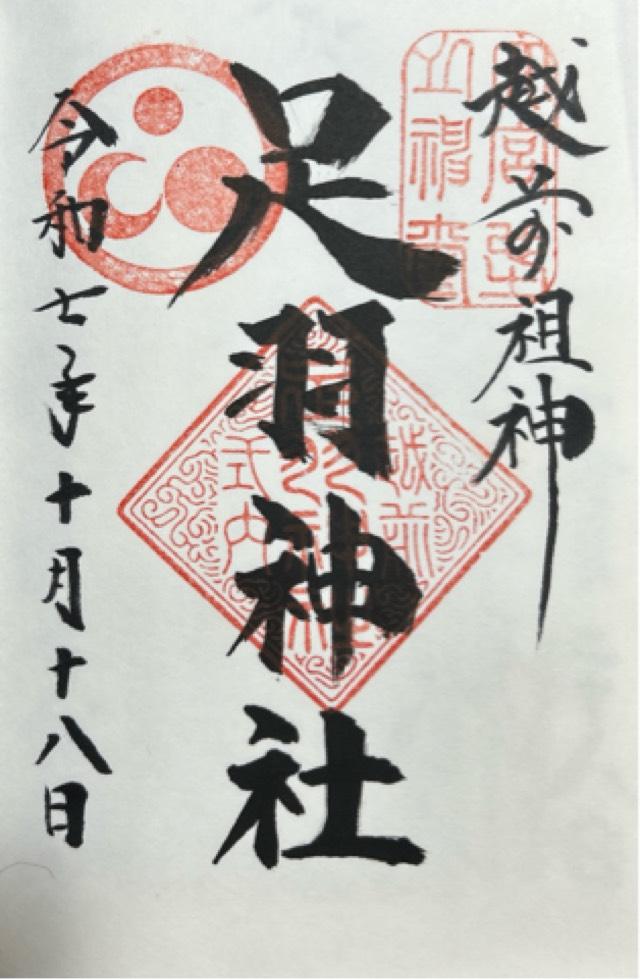 越前祖神
足羽神社
令和七年十月十八日
越前
式内